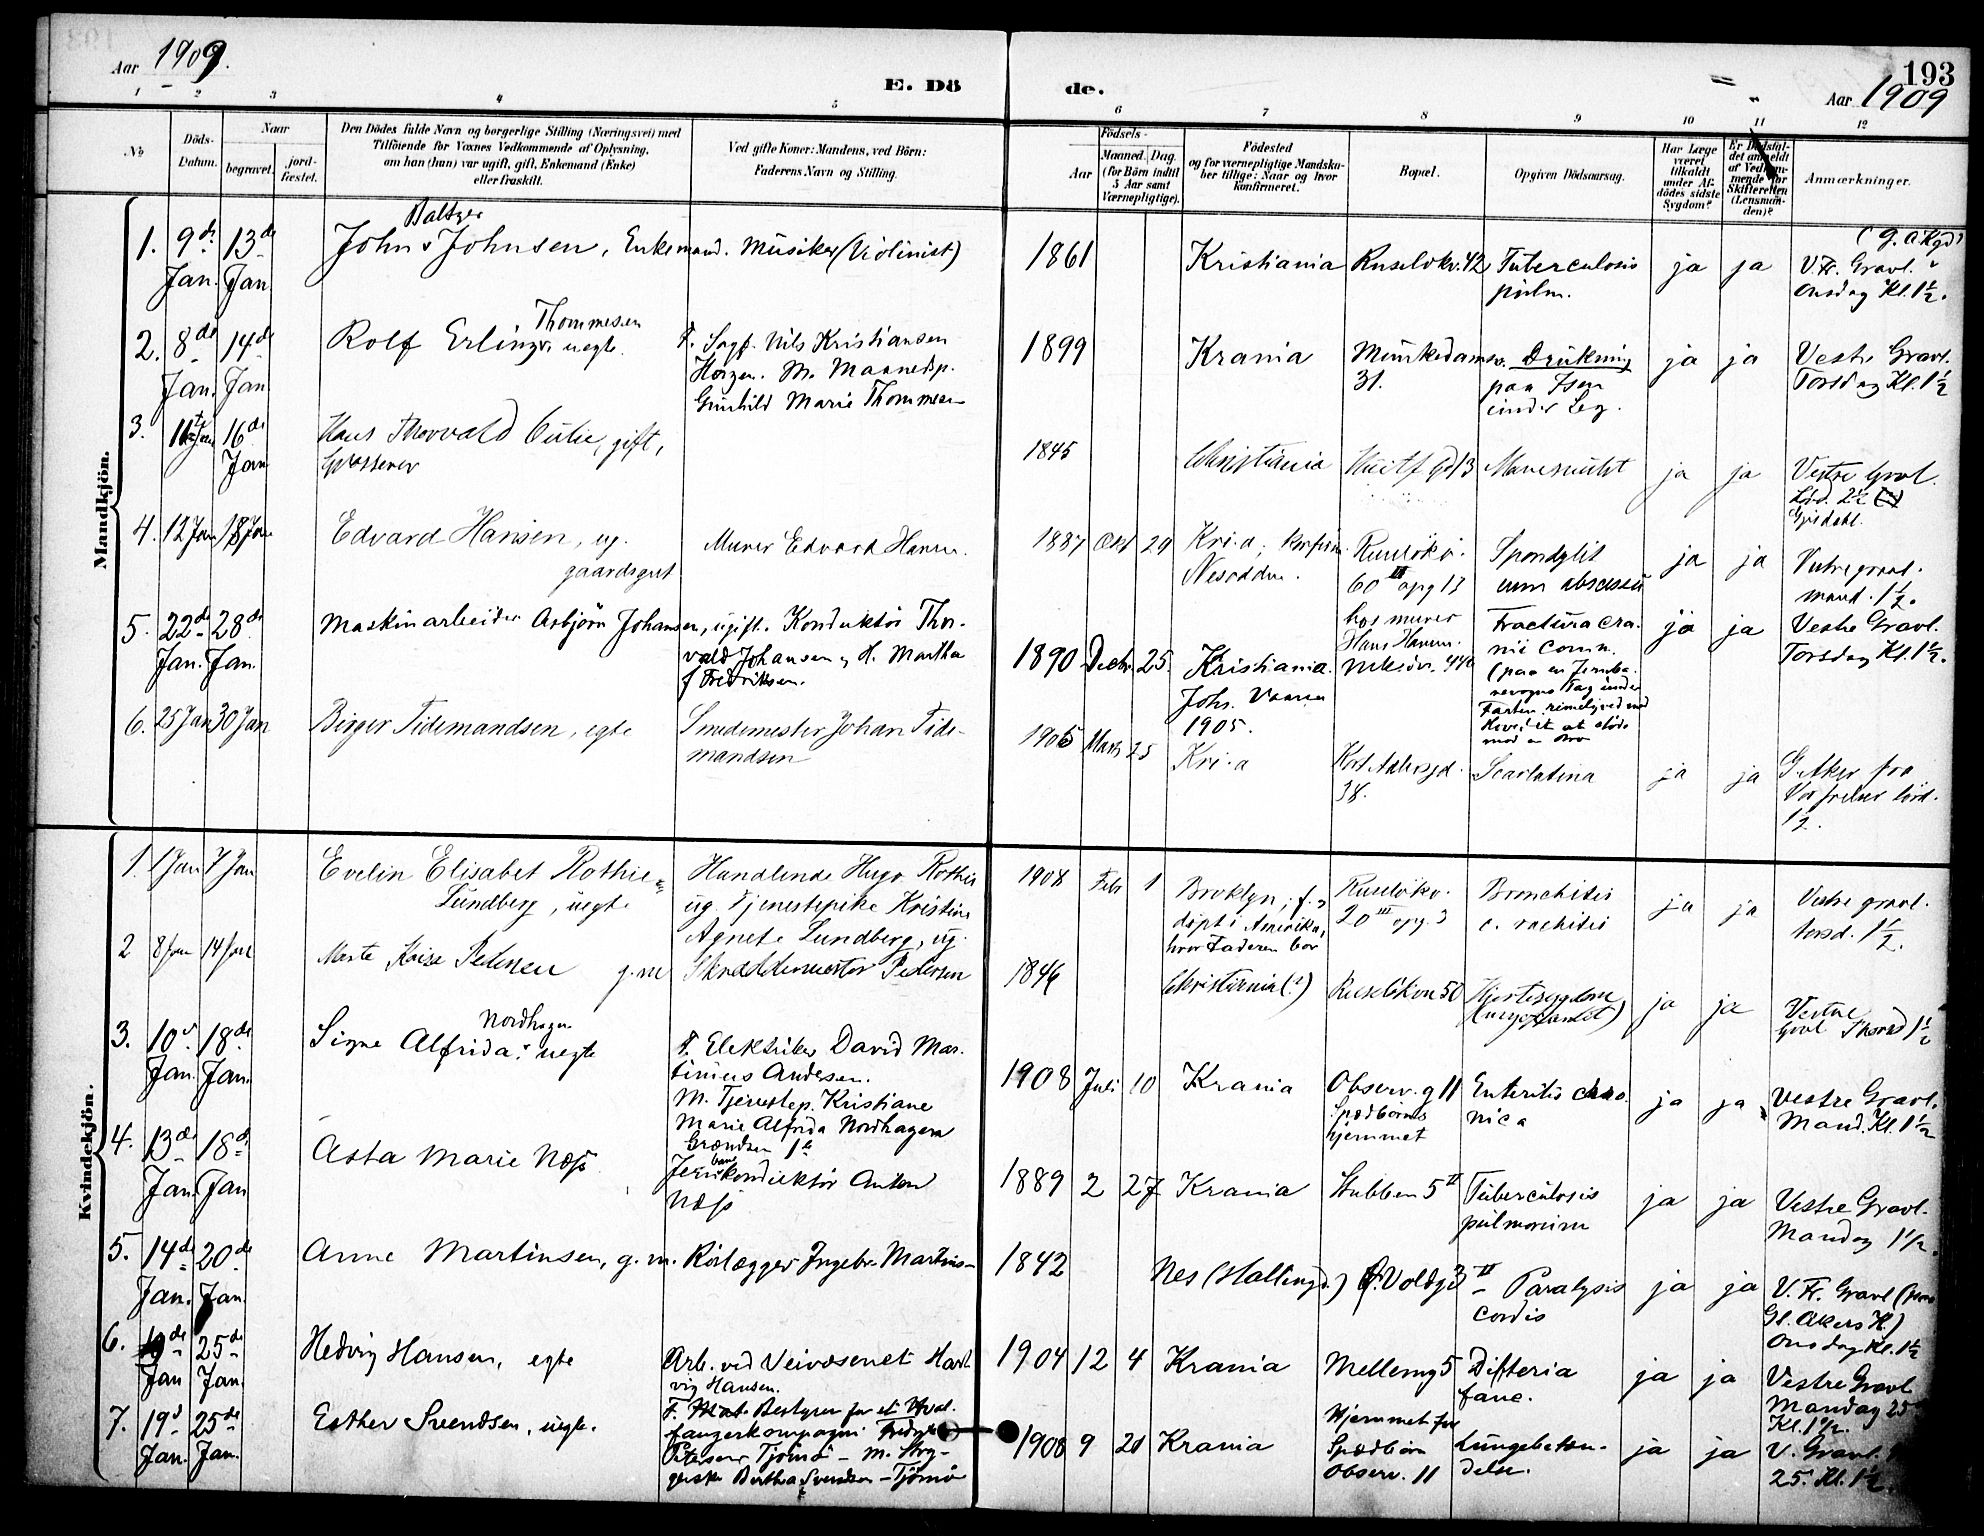 Aar 1909.
E. Dö
de.
193
Aar 1909
1 2 3 4 5 6 7 8 9 10 11 12
No
Döds-Datum.
Naar
begravet.
jord-fæstet.
Den Dödes fulde Navn og borgerlige Stilling (Næringsvei) med
Tilföiende for Voxnes Vedkommende af Oplysning,
om han (hun) var ugift, gift, Enkemand (Enke)
eller fraskilt.
Ved gifte Koner: Mandens, ved Börn:
Faderens Navn og Stilling.
Födsels-
Aar
Maaned.
Dag.
(for Börn indtil
5 Aar samt
Værnepligtige).
Födested
og for værnepligtige Mandska-
ber tillige: Naar og hvor
konfirmeret.
Bopæl.
Opgiven Dödsaarsag.
Har Læge
været
tilkaldt
under Af-
dödes sidste
Sygdom?
Er Dödsfal-
det anmeldt
af Vedkom-
mende for
Skifteretten
(Lensman-
den)?
Anmærkninger.
Mandkjön.
1. 9de Jan. 13de Jan
Baltzer
John Johnsen, Enkemand. Musiker (Violinist)
1861 Kristiania Ruselökv. 42 Tuberculosis
pulm.
ja ja
V. Fr. Gravl.
Onsdag Kl. 1½.
2. 8de Jan. 14de Jan
Thommesen
Rolf Erling, uegte.
F. Sagf. Nils Kristiansen
M. Maanedsp.
Gunhild Marie Thommesen
1899 Krania Munkedamsv.
31.
Drukning
paa Isen
under Leg.
ja ja
Vestre Gravl.
Torsdag Kl. 1½
3. 11te Jan 16de Jan
Hans Thorvald gift,
1845 Christiania 13 ja ja
Vestre Gravl.
Lörd.
4. 12 Jan 18 Jan
Edvard Hansen, ug.
gaardsgut
Murer Edvard Hansen.
1887 Okt 29 Kri.a; konfirm.
Nesodden.
Ruselökv.
60 III opg 13
hos murer
Hans Hansen.
Spondylit
cum abscessu
ja ja
Vestre gravl.
mand. 1½.
5. 22de Jan. 28de Jan.
Maskinarbeider Asbjörn Johansen, ugift. Konduktör Thor-
vald Johansen og H. Martha
f Fredriksen.
1890 Decbr. 25. Kristiania.
Joh. Vaaren
1905.
Fractura cra-
nii comm.
(paa en Jernba-
nevogns Tag under
Farten, rimeligved med
Hovedet at støde
mod en Bro
ja ja
Vestre Gravl.
Torsdag Kl. 1½.
6. 25 Jan 30 Jan
Birger Tidemandsen, egte
Smedemester Johan Tide-
mandsen
1905 Marts 25 Kri.a
38.
Scarlatina
ja ja
G. Aker fra
Vor frelser lörd.
1½.
Kvindekjön.
1. 1 Jan 7 Jan
Evelin Elisabet Rothie
Lundberg, uegte
Handlende Hugo Rothie
ug. Tjenestepike Kristine
Agnete Lundberg, ug.
1908 Feb 1 Broklyn,
döpt i Amerika,
hvor Faderen bor
Ruselökv.
20 III opg. 3
Bronchitis
c. rachitis
ja ja
Vestre gravl.
torsd. 1½.
2 8 Jan 14 Jan
Marte Kaisa Pedersen g.m
Skræddermester Pedersen
1846 Christiania (?) Ruselökvn 50 Hjertesygdom
ja ja
Vestre
Gravl Thorsd 1½
3. 10de Jan. 18de Jan.
Nordhagen
Signe Alfrida, uegte
F. Elektriker David Mar-
tinius Andersen.
M. Tjenestep. Kristiane
Marie Alfrida Nordhagen
Grændsen 1b
1908 Juli 10 Krania
Observ. g 11
Spædbarns
hjemmet
Enteritis chro-
nica
ja ja
Vestre Gravl.
Mand. Kl. 1½
4. 13de Jan. 18de Jan
Asta Marie Næss
Jernbanekonduktör Anton
Næss
1889 2 27 Krania Stubben 5 II Tuberculosis
pulmonum
ja ja
Vestre Gravl.
Mandag 1½.
5. 14de Jan. 20de Jan.
Anne Martinsen, g.m. Rörlægger Ingebr. Martins-
1842 Nes (Hallingd.) Voldg 3 II Paralysis
cordis
ja ja
V. Fr. Gravl
Gl. Akers K.)
Onsdag Kl. 1½
6. 19de Jan 25de Jan.
Hedvig Hansen, egte
Arb. ved Veivæsenet Hart-
vig Hansen.
1904 12 4 Krania Mellemg 5 Difteria
fauc.
ja ja
Vestre Gravl
Mandag 25
Kl. 1½.
7. 19d Jan. 25de Jan.
Esther Svendsen, uegte.
F. Bestyrer for et Hval-
fangerkompagni
Petersen Tjömö – M. Stry-
gerske Bertha Svendsen – Tjömö
1908 9 21 Krania
Hjemmet for
Spædbörn
Observ. 11
Lungebetæn-
delse.
ja ja
V. Gravl.
25. Kl. 1½.